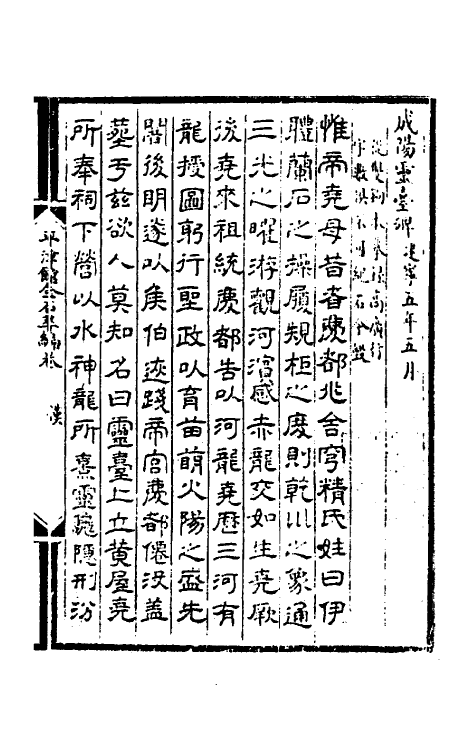 成陽靈臺碑建寧五年五月
惟帝堯母昔者慶都兆舍穹精氏姓曰伊
體蘭石之操履規柜之度則乾川之象通
三光之曜游觀河濱感赤龍交如生堯厥
後堯來祖統慶都告以河龍堯歷三河有
龍授圖躬行聖政以育苗萌火陽之盛先
闓後明遂以矦伯遊踐帝宮慶都僊沒蓋
葬于兹欲人莫知名曰靈臺上立黄屋堯
所奉祠下營以水神龍所熹靈隱刑汾
平津館金石萃編 漢